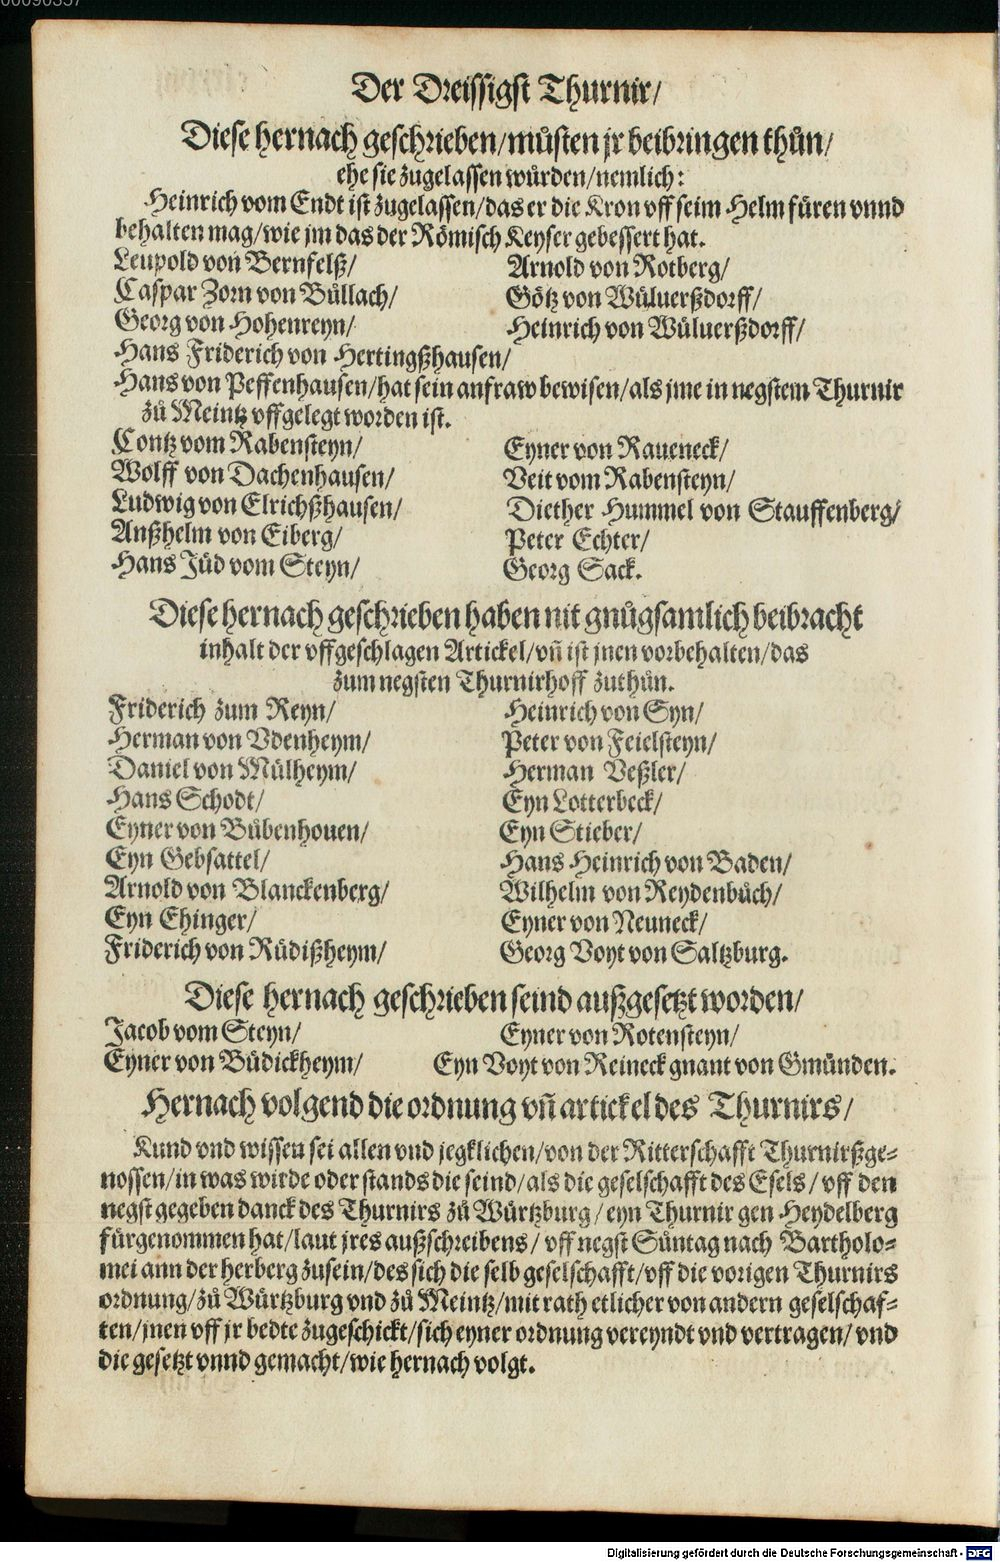 00090357
Der Dreissigst Thurnir/
Diese hernach geschrieben/můsten jr beibringen thůn/
ehe sie zugelassen würden/nemlich:
Heinrich vom Endt ist zugelassen/das er die Kron vff seim Helm füren vnnd
behalten mag/wie jm das der Römisch Keyser gebessert hat.
Leupold von Bernfelß/ Arnold von Rotberg/
Caspar Zorn von Büllach/ Götz von Wüluerßdorff/
Georg von Hohenreyn/ Heinrich von Wüluerßdorff/
Hans Friderich von Hertingßhausen/
Hans von Peffenhausen/hat sein anfraw bewisen/als jme in negstem Thurnir
zů Meintz vffgelegt worden ist.
Contz vom Rabensteyn/ Eyner von Raueneck/
Wolff von Dachenhausen/ Veit vom Rabensteyn/
Ludwig von Elrichßhausen/ Diether Hummel von Stauffenberg/
Anßhelm von Eiberg/ Peter Echter/
Hans Jüd vom Steyn/ Georg Sack.
Diese hernach geschrieben haben nit gnůgsamlich beibracht
inhalt der vffgeschlagen Artickel/vn̄ ist jnen vorbehalten/das
zum negsten Thurnirhoff zuthůn.
Friderich zum Reyn/ Heinrich von Syn/
Herman von Vdenheym/ Peter von Feielsteyn/
Daniel von Mülheym/ Herman Veßler/
Hans Schodt/ Eyn Lotterbeck/
Eyner von Bůbenhouen/ Eyn Stieber/
Eyn Gebsattel/ Hans Heinrich von Baden/
Arnold von Blanckenberg/ Wilhelm von Reydenbůch/
Eyn Ehinger/ Eyner von Neuneck/
Friderich von Rüdißheym/ Georg Voyt von Saltzburg.
Diese hernach geschrieben seind außgesetzt worden/
Jacob vom Steyn/ Eyner von Rotensteyn/
Eyner von Büdickheym/ Eyn Voyt von Reineck gnant von Gmünden.
Hernach volgend die ordnung vn̄ artickel des Thurnirs/
Kund vnd wissen sei allen vnd jegklichen/von der Ritterschafft Thurnirßge-
nossen/in was wirde oder stands die seind/als die geselschafft des Esels/vff den
negst gegeben danck des Thurnirs zů Würtzburg/eyn Thurnir gen Heydelberg
fürgenommen hat/laut jres außschreibens/vff negst Sůntag nach Bartholo-
mei ann der herberg zusein/des sich die selb geselschafft/vff die vorigen Thurnirs
ordnung/zů Würtzburg vnd zů Meintz/mit rath etlicher von andern geselschaf-
ten/jnen vff jr bedte zugeschickt/sich eyner ordnung vereyndt vnd vertragen/vnd
die gesetzt vnnd gemacht/wie hernach volgt.
Digitalisierung gefördert durch die Deutsche Forschungsgemeinschaft - DFG